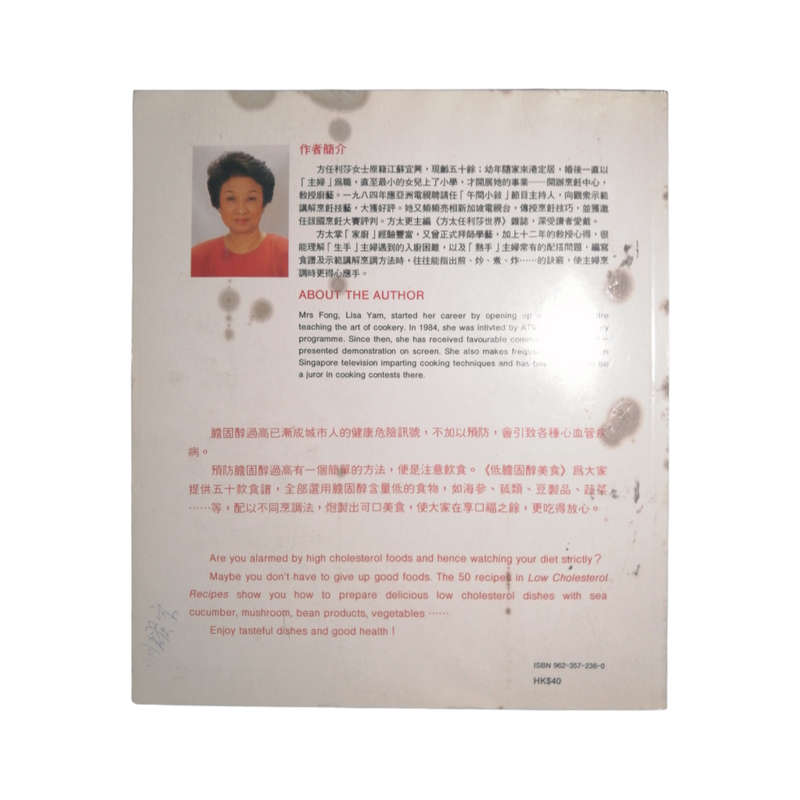 作者簡介
方任利莎女士原籍江蘇宜興,現齡五十餘;幼年隨家來港定居,婚後一直以
「主婦」爲職,直至最小的女兒上了小學,才開展她的事業——開辦烹飪中心,
教授廚藝。一九八四年應亞洲電視聘請任「午間小敍」節目主持人,向觀衆示範
講解烹飪技藝,大獲好評。她又頻頻亮相新加坡電視台,傳授烹飪技巧,並獲邀
任該國烹飪大賽評判。方太更主編《方太任利莎世界》雜誌,深受讀者愛戴。
方太掌「家廚」經驗豐富,又曾正式拜師學藝,加上十二年的教授心得,很
能理解「生手」主婦遇到的入廚困難,以及「熟手」主婦常有的配搭問題,編寫
食譜及示範講解烹調方法時,往往能指出煎、炒、煮、炸……的訣竅,使主婦烹
調時更得心應手。
ABOUT THE AUTHOR
Mrs Fong, Lisa Yam, started her career by opening up
teaching the art of cookery. In 1984, she was intivted by
programme. Since then, she has received favourable
presented demonstration on screen. She also makes
Singapore television imparting cooking techniques and has
a juror in cooking contests there.
膽固醇過高已漸成城市人的健康危險訊號,不加以預防,會引致各種心血管疾
病。
預防膽固醇過高有一個簡單的方法,便是注意飲食。《低膽固醇美食》爲大家
提供五十款食譜,全部選用膽固醇含量低的食物,如海參、菰類、豆製品、蔬菜
……等,配以不同烹調法,炮製出可口美食,使大家在享口福之餘,更吃得放心。
Are you alarmed by high cholesterol foods and hence watching your diet strictly?
Maybe you don't have to give up good foods. The 50 recipes in Low Cholesterol
Recipes show you how to prepare delicious low cholesterol dishes with sea
cucumber, mushroom, bean products, vegetables ……
Enjoy tasteful dishes and good health!
ISBN 962-357-238-0
HK$40